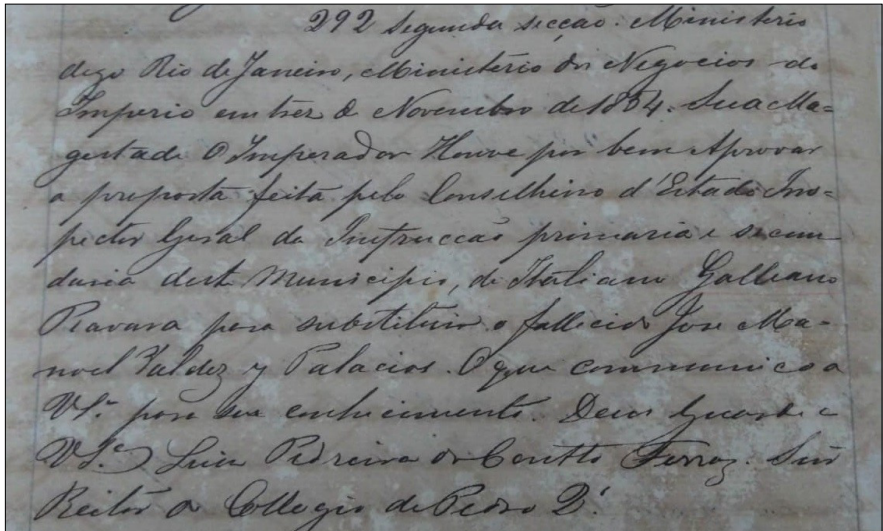 292 Segunda secção. Ministerio
do Rio de Janeiro, Ministerio dos Negocios do
Imperio em tres de Novembro de 1854. Sua Ma=
gestade O Imperador Houve por bem Aprovar
a proposta feita pelo Conselheiro d'Estado Ins=
pector Geral da Instrucção primaria e secun
daria deste Municipio, do Italiano Galleano
Ravara para substituir o fallecido Jose Ma=
noel Valdez y Palacios. O que communico a
VSª para seu conhecimento. Deos Guarde a
VSª Luiz Pedreira do Coutto Ferraz. Snr
Reitor do Collegio de Pedro 2º.